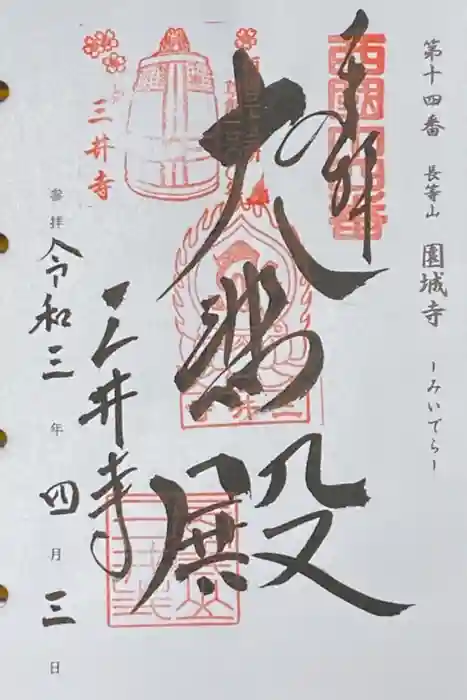 第十四番 長等山 園城寺 -みいでら-
西国十四番
奉拝
大悲殿
三井寺
三井寺
参拝 令和三年四月三日